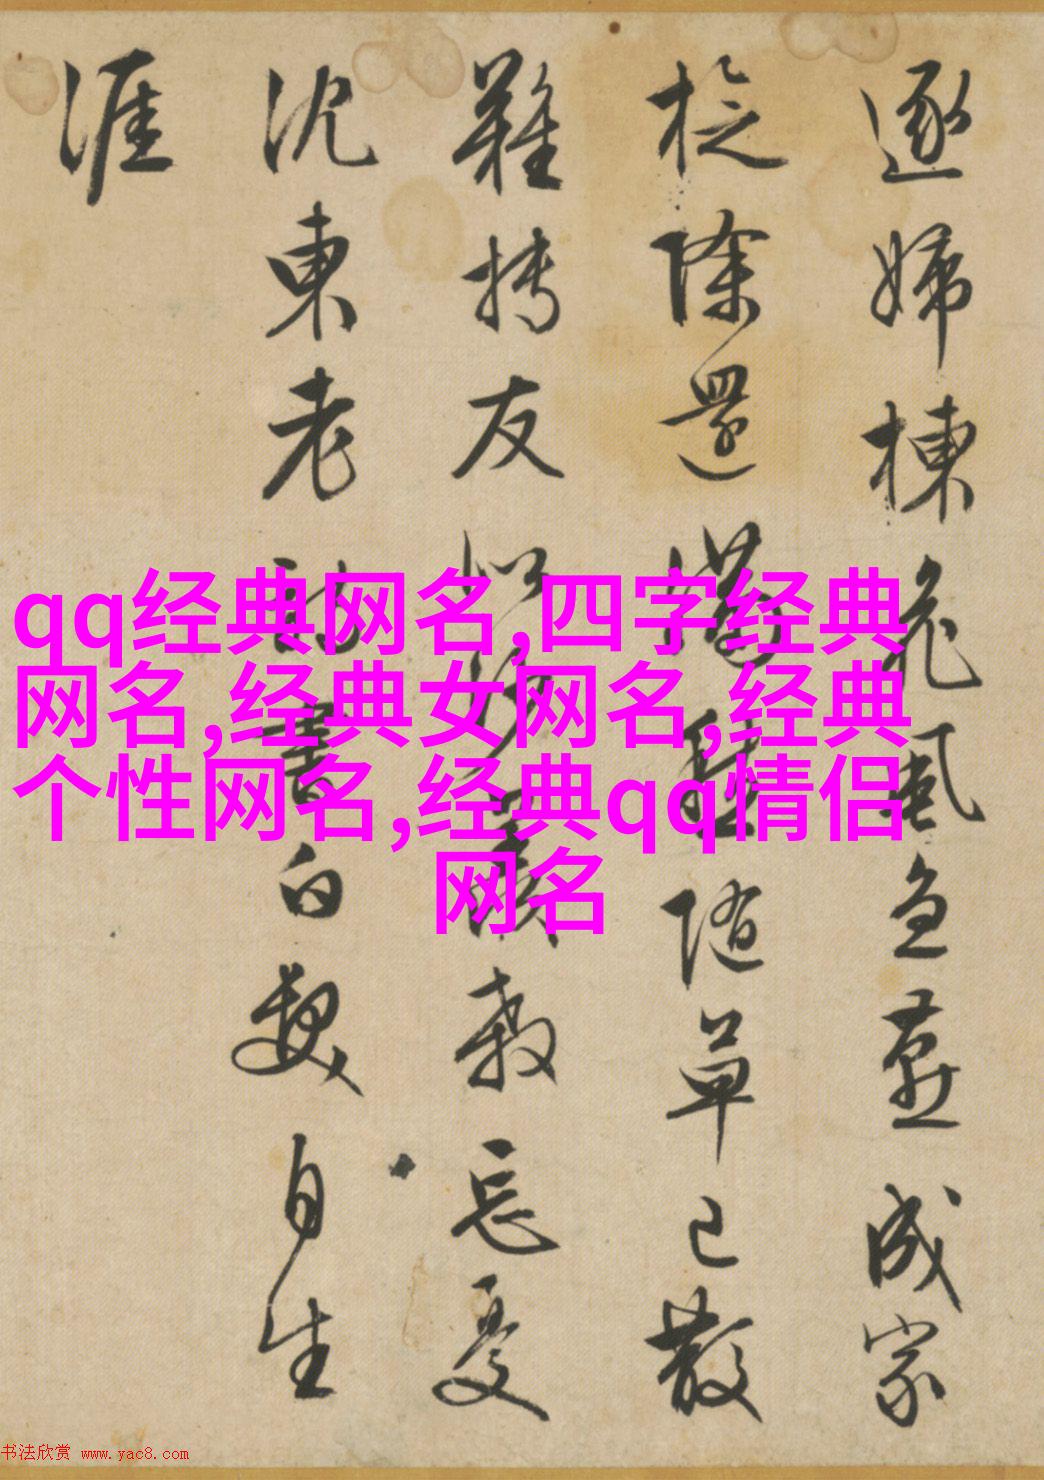 逐婦棟危風急成家
除還滿隨草已散
難摶友忘憂
沈東老詩書白髮自生
涯
qq经典网名,四字经典
网名,经典女网名,经典
个性网名,经典qq情侣
网名
书法欣赏 www.yac8.com